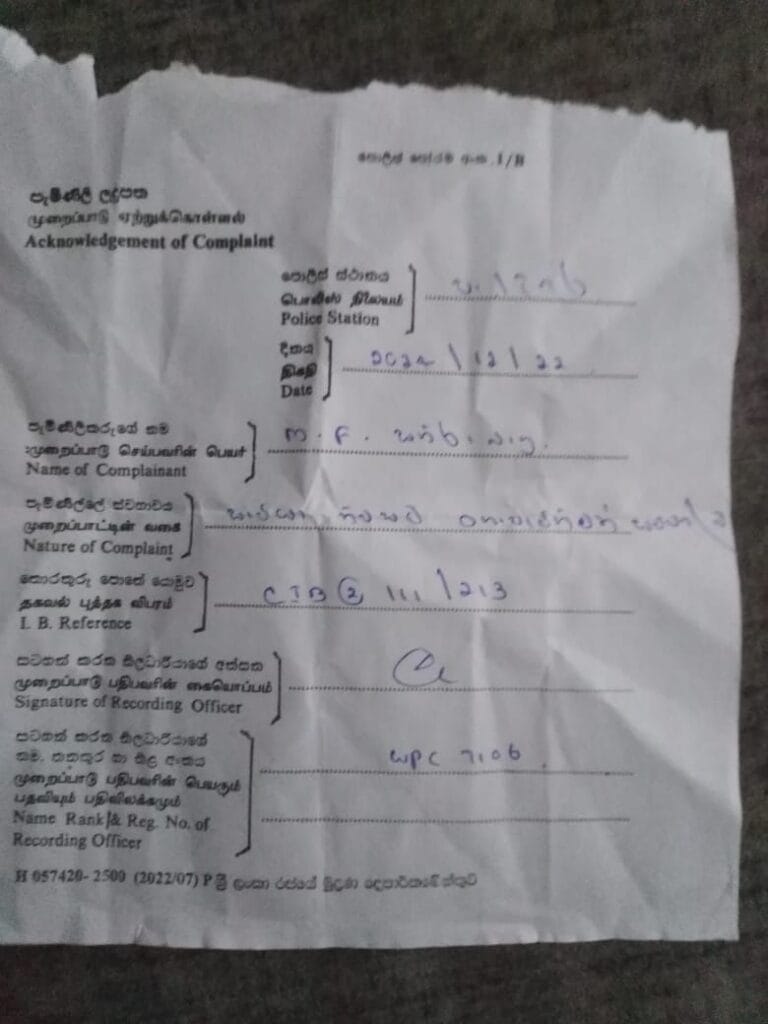 පොලිස් පෝරම අංක. I/B
පැමිණිලි ලදුපත
முறைப்பாடு ஏற்றுக்கொள்ளல்
Acknowledgement of Complaint
පොලිස් ස්ථානය
பொலிஸ் நிலையம்
Police Station
දිනය
திகதி
Date
2024/12/22
පැමිණිලිකරුගේ නම
முறைப்பாடு செய்பவரின் பெயர்
Name of Complainant
M. F.
පැමිණිල්ලේ ස්වභාවය
முறைப்பாட்டின் வகை
Nature of Complaint
තොරතුරු පොතේ යොමුව
தகவல் புத்தக விபரம்
I. B. Reference
CIB 2 111/213
සටහන් කරන නිලධාරියාගේ අත්සන
முறைப்பாடு பதிபவரின் கையொப்பம்
Signature of Recording Officer
සටහන් කරන නිලධාරියාගේ
නම, තනතුර හා නිල අංකය
முறைப்பாடு பதிபவரின் பெயரும்
பதவியும் பதிவிலக்கமும்
Name Rank & Reg. No. of
Recording Officer
WPC 7106
H 057420- 2500 (2022/07) P ශ්‍රී ලංකා රජයේ මුද්‍රණ දෙපාර්තමේන්තුව